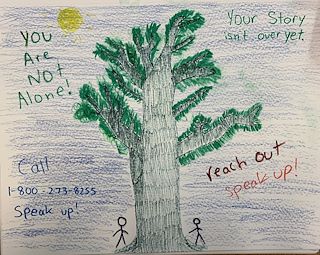 You
Are
Not
Alone!
Your Story
isn't over yet.
Call
1-800-273-8255
Speak up!
reach out
speak up!